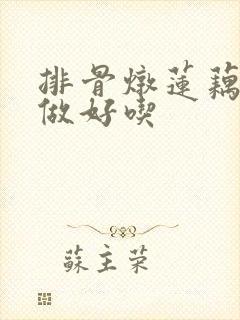 排骨燉蓮藕
做好喫
蘇主荣